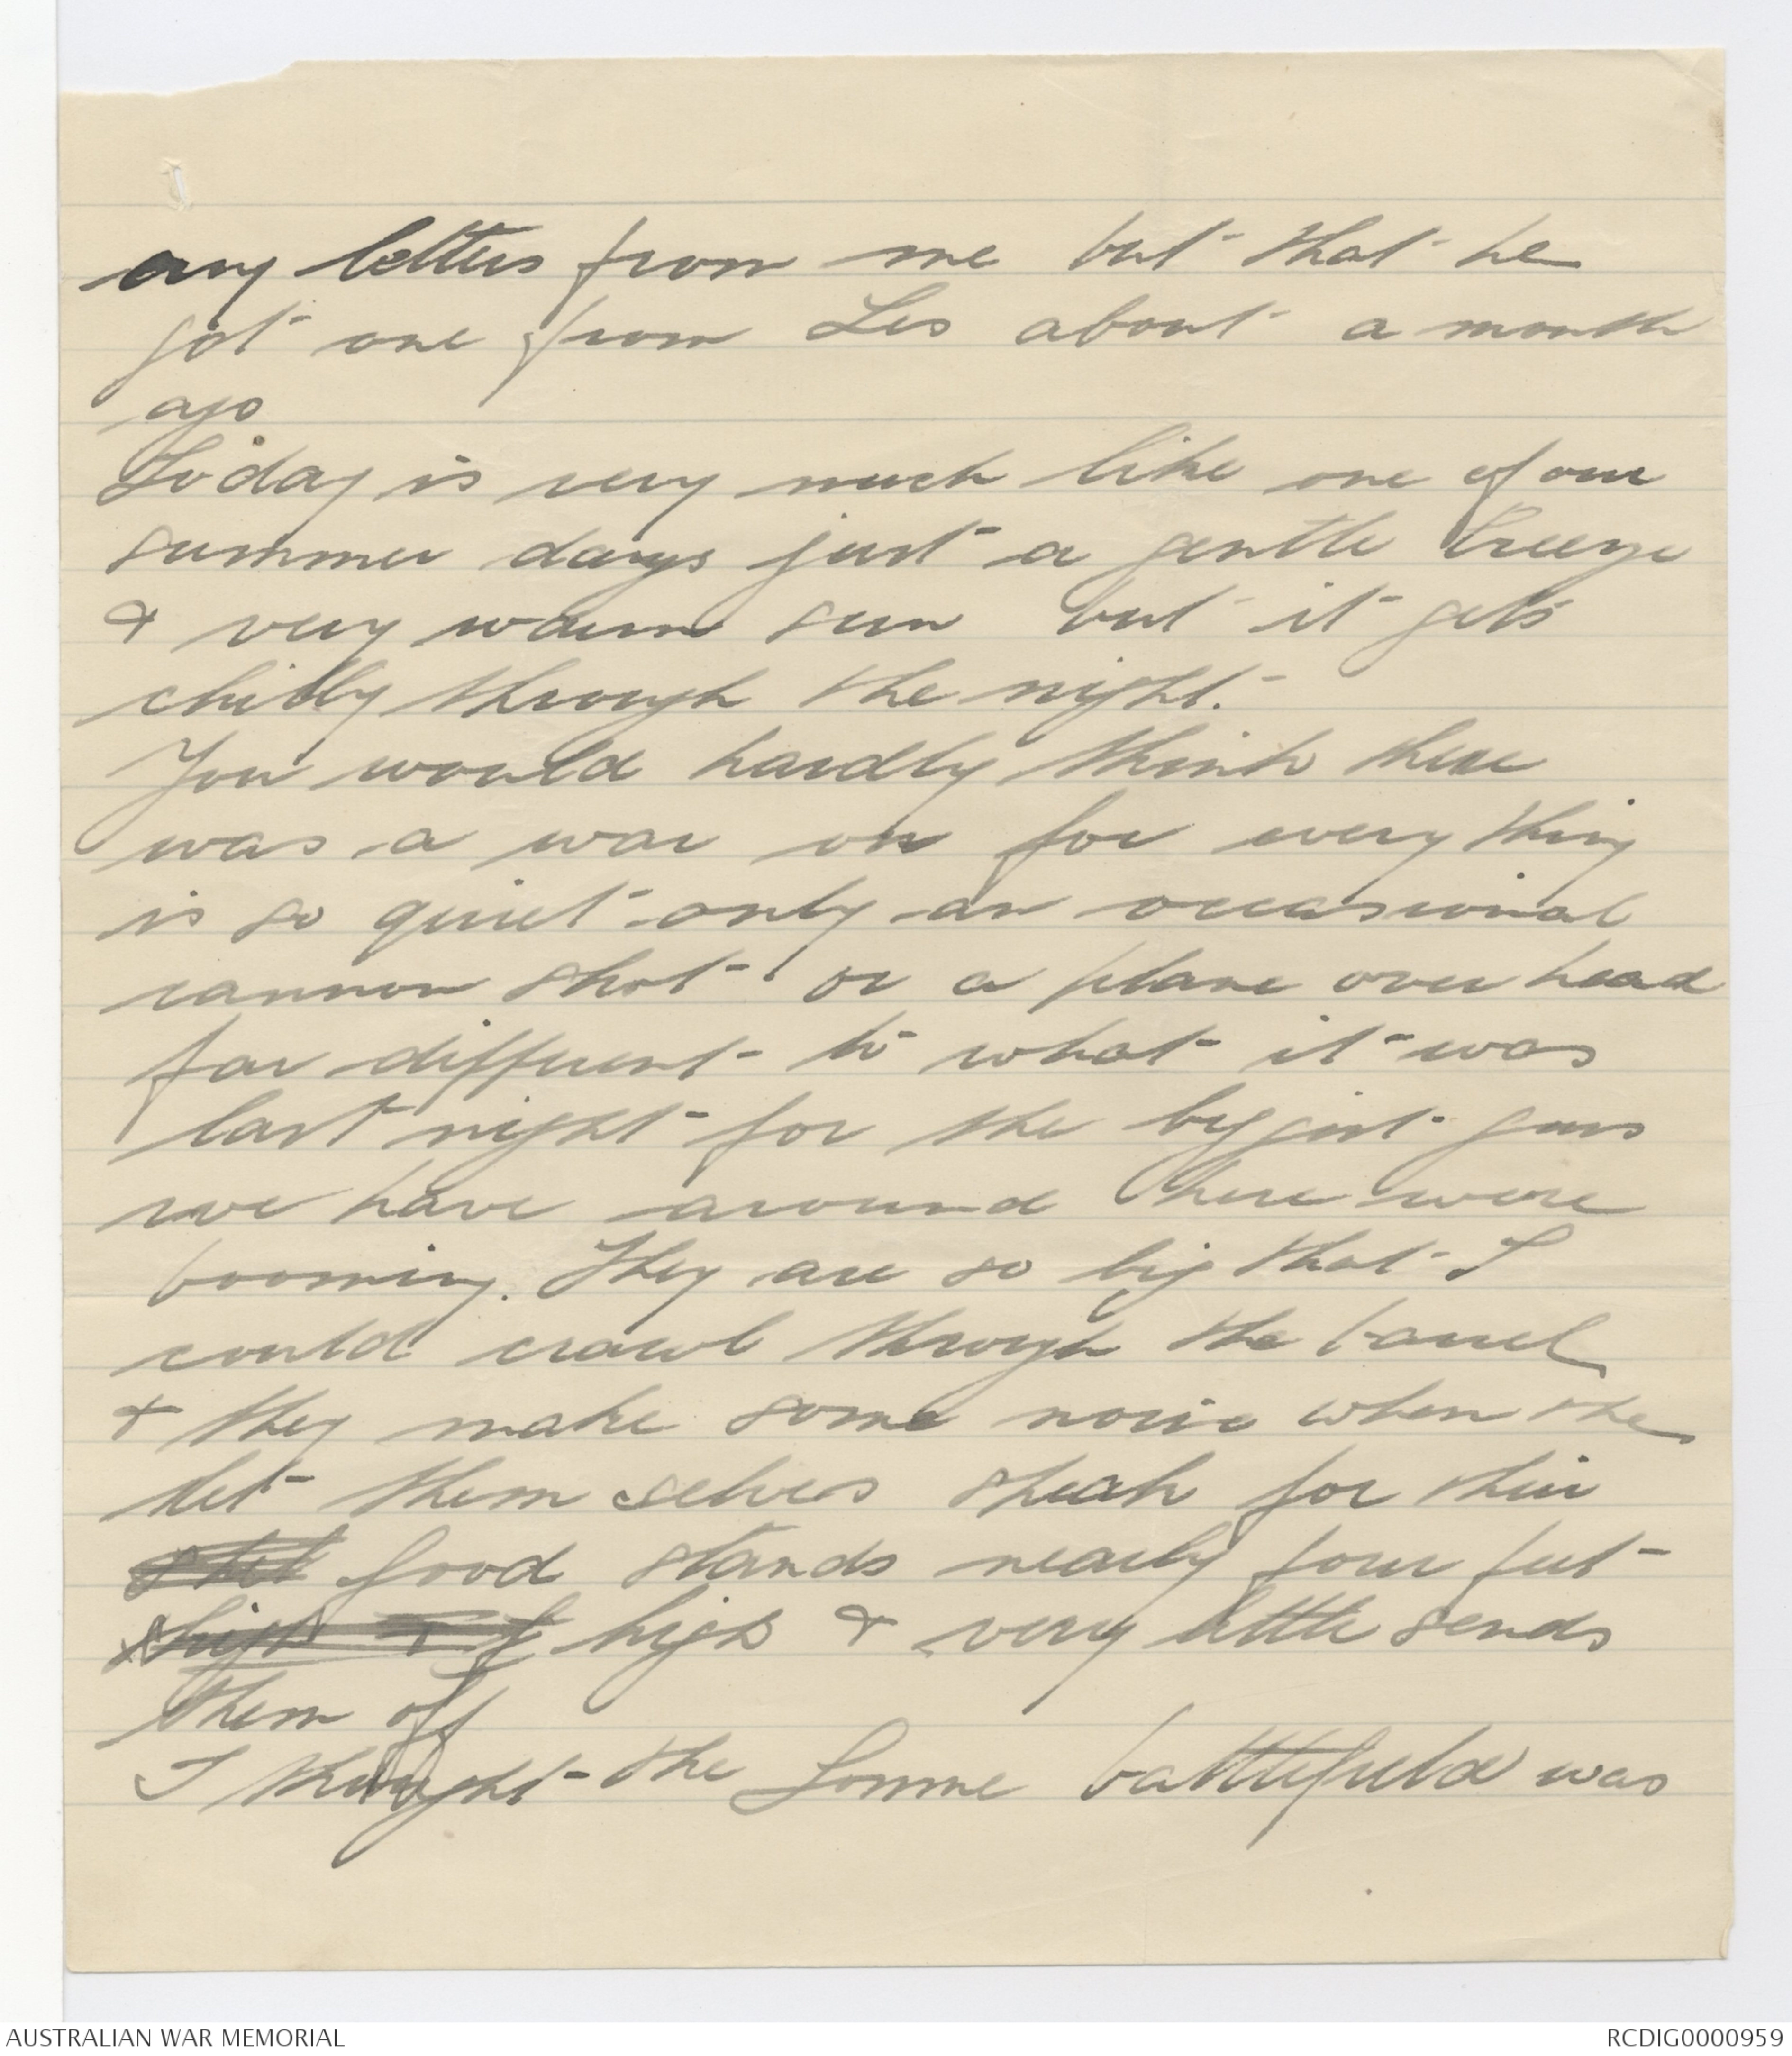 any letters from me but that he
got one from Les about a month
ago
Today is very much like one of our
summer days just a gentle breeze
& very warm sun but it gets
chilly through the night.
You would hardly think there
was a war on for every thing
is so quiet only an occasional
cannon shot or a plane over head
far different to what it was
last night for the biggist guns
we have around here were
booming. They are so big that I
could crawl through the barrel
& they make some noise when the
let them selves speak for thier
food stands nearly four feet
high & very little sends
them off
I thought the Somme battlefield was
AUSTRALIAN WAR MEMORIAL
RCDIG0000959